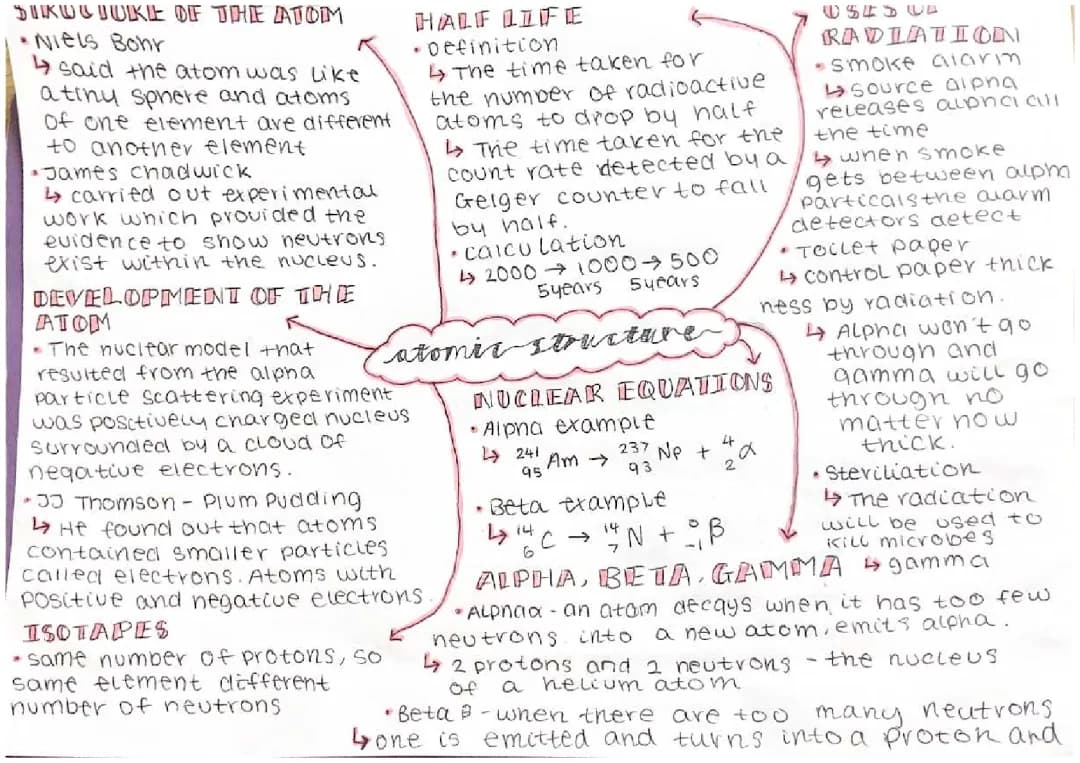 STRUCTURE OF THE ATOM
• Niels Bohr
↳ said the atom was like
a tiny sphere and atoms
of one element are different
to another element
• James chadwick
↳ carried out experimental
work which provided the
evidence to show neutrons
exist within the nucleus.
DEVELOPMENT OF THE
ATOM
• The nuclear model that
resulted from the alpha
particle scattering experiment
was positively charged nucleus
surrounded by a cloud of
negative electrons.
• JJ Thomson - Plum Pudding
↳ He found out that atoms
contained smaller particles
called electrons. Atoms with
positive and negative electrons.
ISOTAPES
• same number of protons, so
same element different
number of neutrons
HALF LIFE
• Definition
↳ The time taken for
the number of radioactive
atoms to drop by half
↳ The time taken for the
count rate detected by a
Geiger counter to fall
by half.
• calculation
↳ 2000 → 1000 → 500
5years 5years
atomic structure
NUCLEAR EQUATIONS
• Alpha example
↳ ²⁴¹₉₅Am → ²³⁷₉₃Np + ⁴₂α
• Beta example
↳ ¹⁴₆C → ¹⁴₇N + ⁰₋₁β
ALPHA, BETA, GAMMA
• Alphaα - an atom decays when it has too few
neutrons into a new atom, emits alpha.
↳ 2 protons and 2 neutrons - the nucleus
of a helium atom
• Beta β - when there are too many neutrons
↳ one is emitted and turns into a proton and
USES OF
RADIATION
• smoke alarm
↳ source alpha
releases alpha all
the time
↳ when smoke
gets between alpha
particals the alarm
detectors detect
• Toilet paper
↳ control paper thick
ness by radiation.
↳ Alpha won't go
through and
gamma will go
through no
matter how
thick.
• Steriliation
↳ The radiation
will be used to
kill microbes
↳ gamma